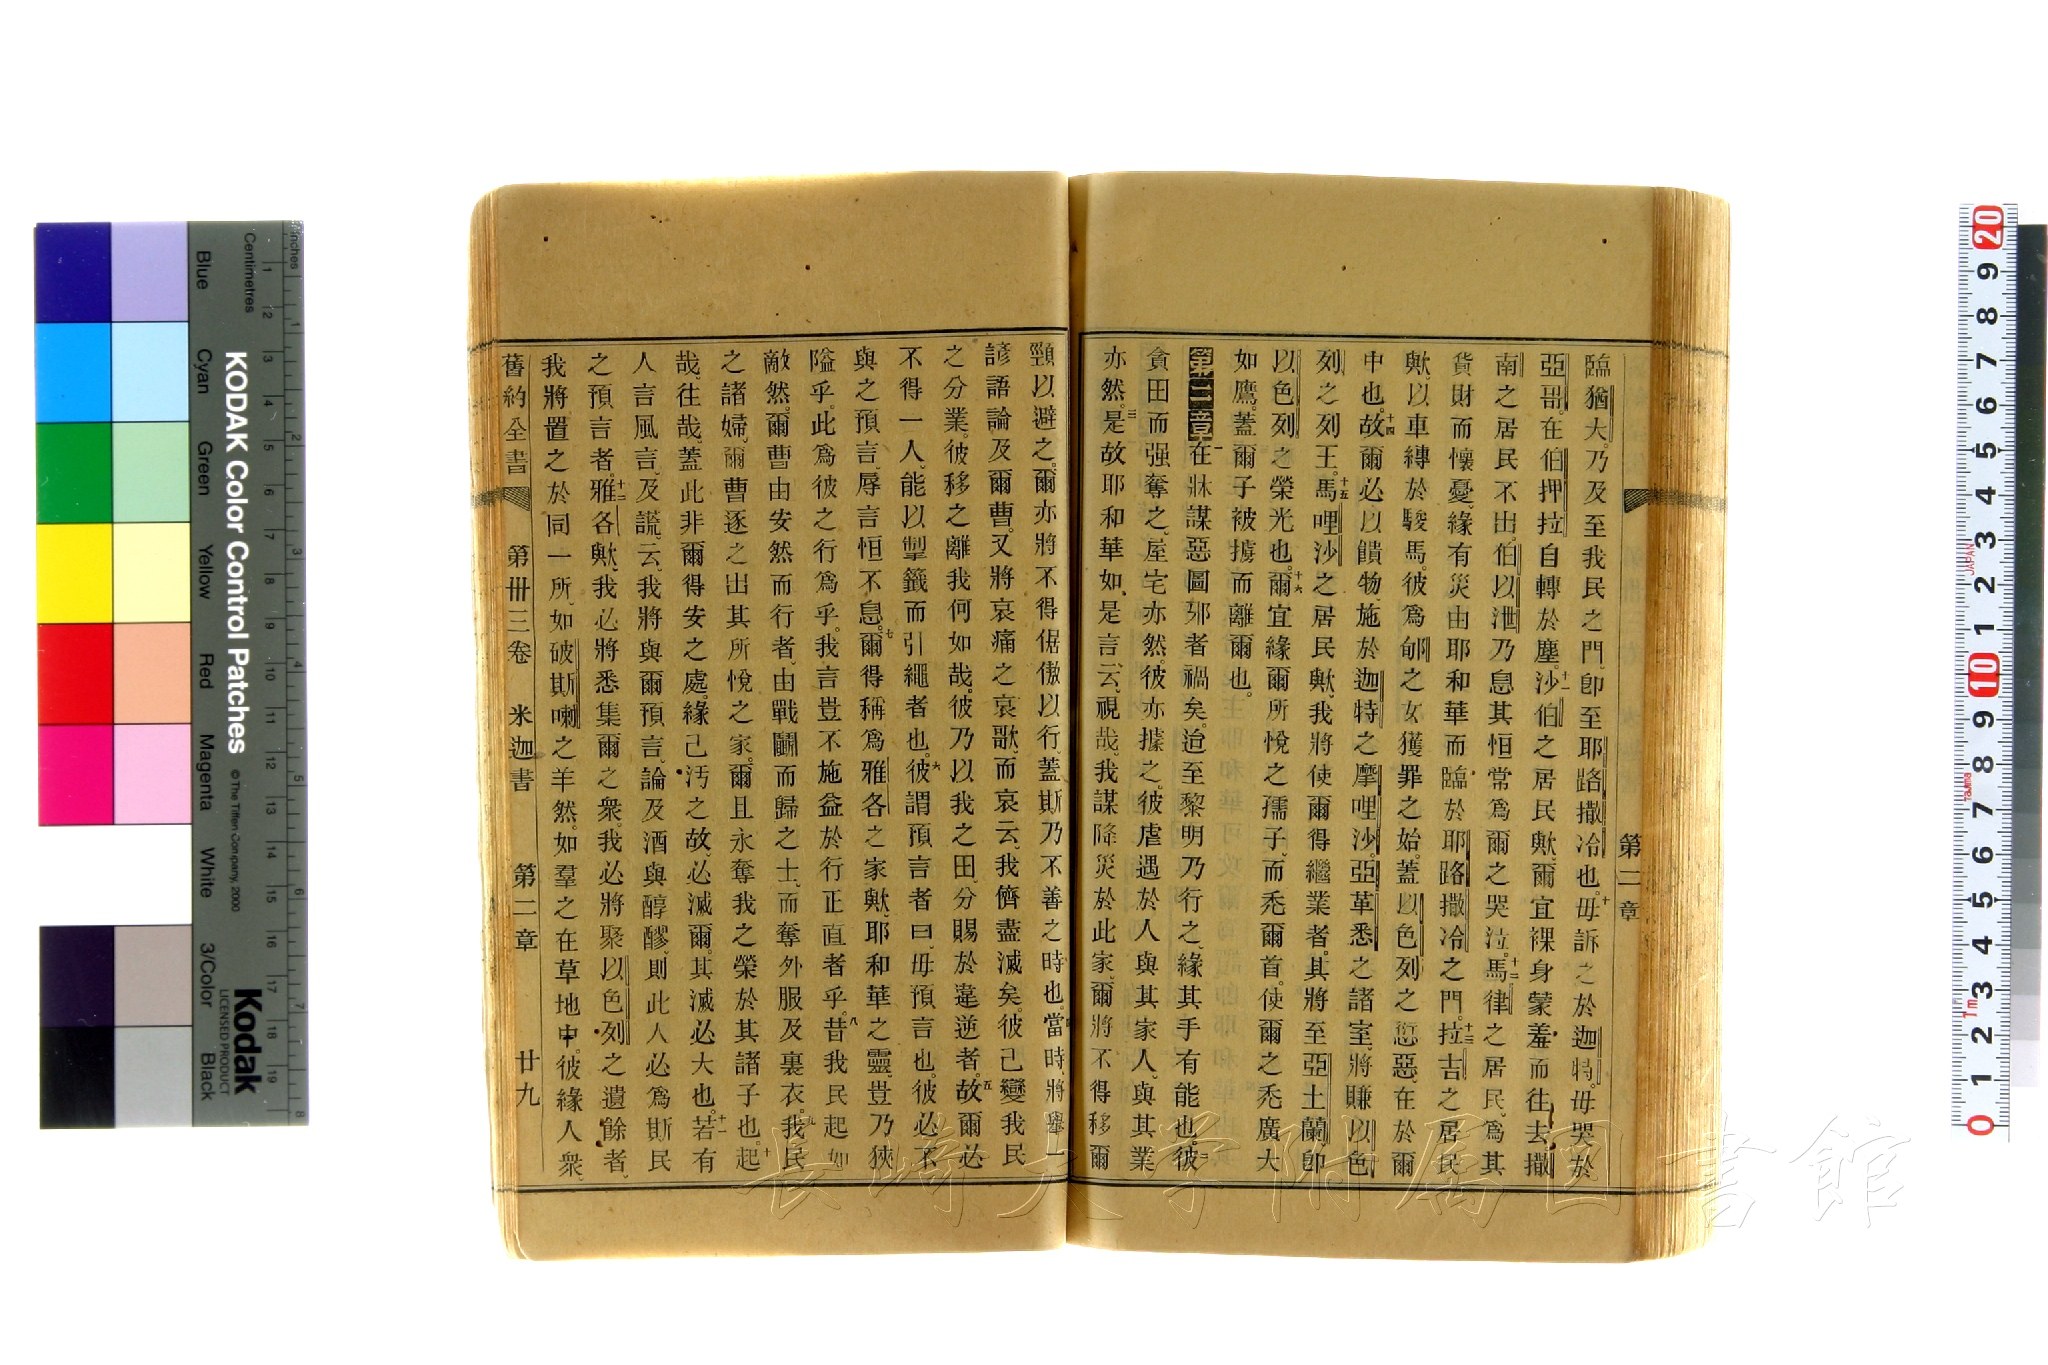 臨猶大。乃及至我民之門、卽至耶路撒冷也。十毋訴之於迦特。毋哭於
亞哥。在伯押拉自轉於塵。十一沙伯之居民歟、爾宜裸身蒙羞而往去。撒
南之居民不出。伯以泄乃息其恒常爲爾之哭泣。十二馬律之居民、爲其
貨財而懷憂、緣有災由耶和華而臨於耶路撒冷之門。十三拉吉之居民
歟、以車縛於駿馬。彼爲郇之女獲罪之始。蓋以色列之愆惡、在於爾
中也。十四故爾必以饋物、施於迦特之摩哩沙。亞革悉之諸室、將賺以色
列之列王。十五馬哩沙之居民歟、我將使爾得繼業者。其將至亞土蘭、卽
以色列之榮光也。十六爾宜緣爾所悅之孺子、而禿爾首。使爾之禿廣大
如鷹。蓋爾子被擄而離爾也。
第二章一在牀謀惡圖邪者禍矣。迨至黎明乃行之、緣其手有能也。二彼
貪田而强奪之、屋宅亦然。彼亦據之。彼虐遇於人與其家人、與其業
亦然。三是故耶和華如是言云、視哉、我謀降災於此家、爾將不得移爾
第二章
頸以避之。爾亦將不得倨傲以行、蓋斯乃不善之時也。四當時、將舉一
諺語論及爾曹。又將哀痛之哀歌、而哀云、我儕盡滅矣。彼已變我民
之分業。彼移之離我何如哉。彼乃以我之田、分賜於違逆者。五故爾必
不得一人、能以掣籤而引繩者也。六彼謂預言者曰、毋預言也。彼必不
與之預言、辱言恒不息。七爾得稱爲雅各之家歟、耶和華之靈、豈乃狹
隘乎。此爲彼之行爲乎。我言豈不施益於行正直者乎。八昔我民起如
敵然。爾曹由安然而行者、由戰鬭而歸之士、而奪外服及裏衣。九我民
之諸婦、爾曹逐之出其所悅之家。爾且永奪我之榮於其諸子也。十起
哉、往哉、蓋此非爾得安之處。緣已汚之故、必滅爾。其滅必大也。十一若有
人言風言、及謊云、我將與爾預言、論及酒與醇醪、則此人必爲斯民
之預言者。十二雅各歟、我必將悉集爾之衆。我必將聚以色列之遺餘者、
我將置之於同一所、如破斯喇之羊然。如羣之在草地中。彼緣人衆、
舊約全書 第卅三卷 米迦書 第二章 廿九
KODAK Color Control Patches
©The Tiffen Company, 2000
Kodak
LICENSED PRODUCT
Inches
Centimetres
Blue
Cyan
Green
Yellow
Red
Magenta
White
3/Color
Black
JAPAN
長崎大学附属図書館